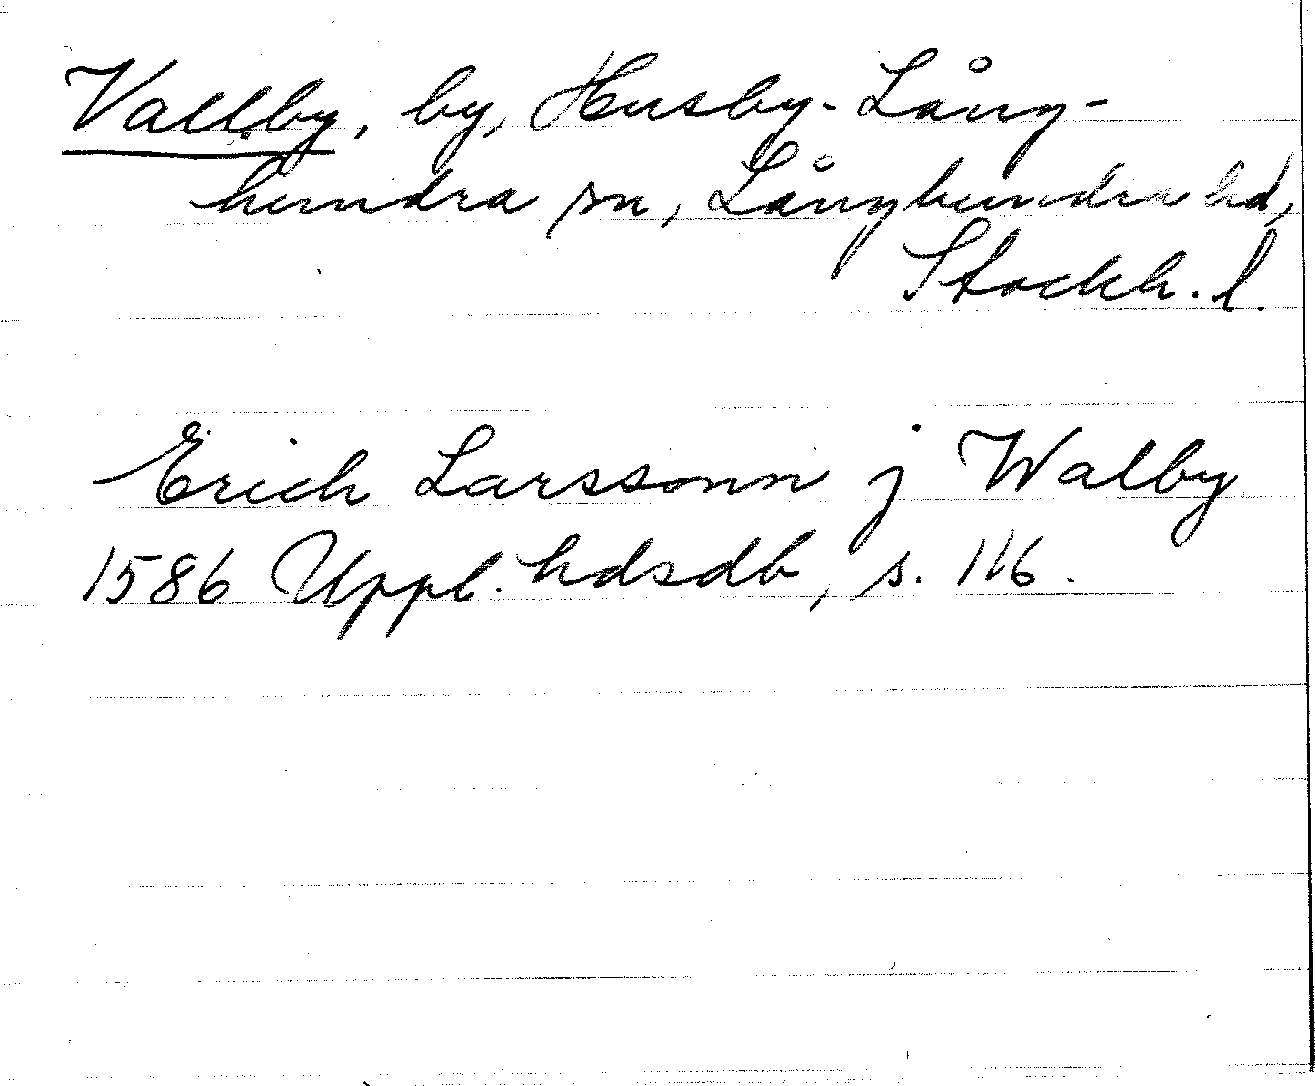 Vallby, by, Husby-Lång-
hundra sn, Långhundra hd,
Stockh. l.
Erich Larssonn j Walby
1586 Uppl. hdsdb, s. 116.